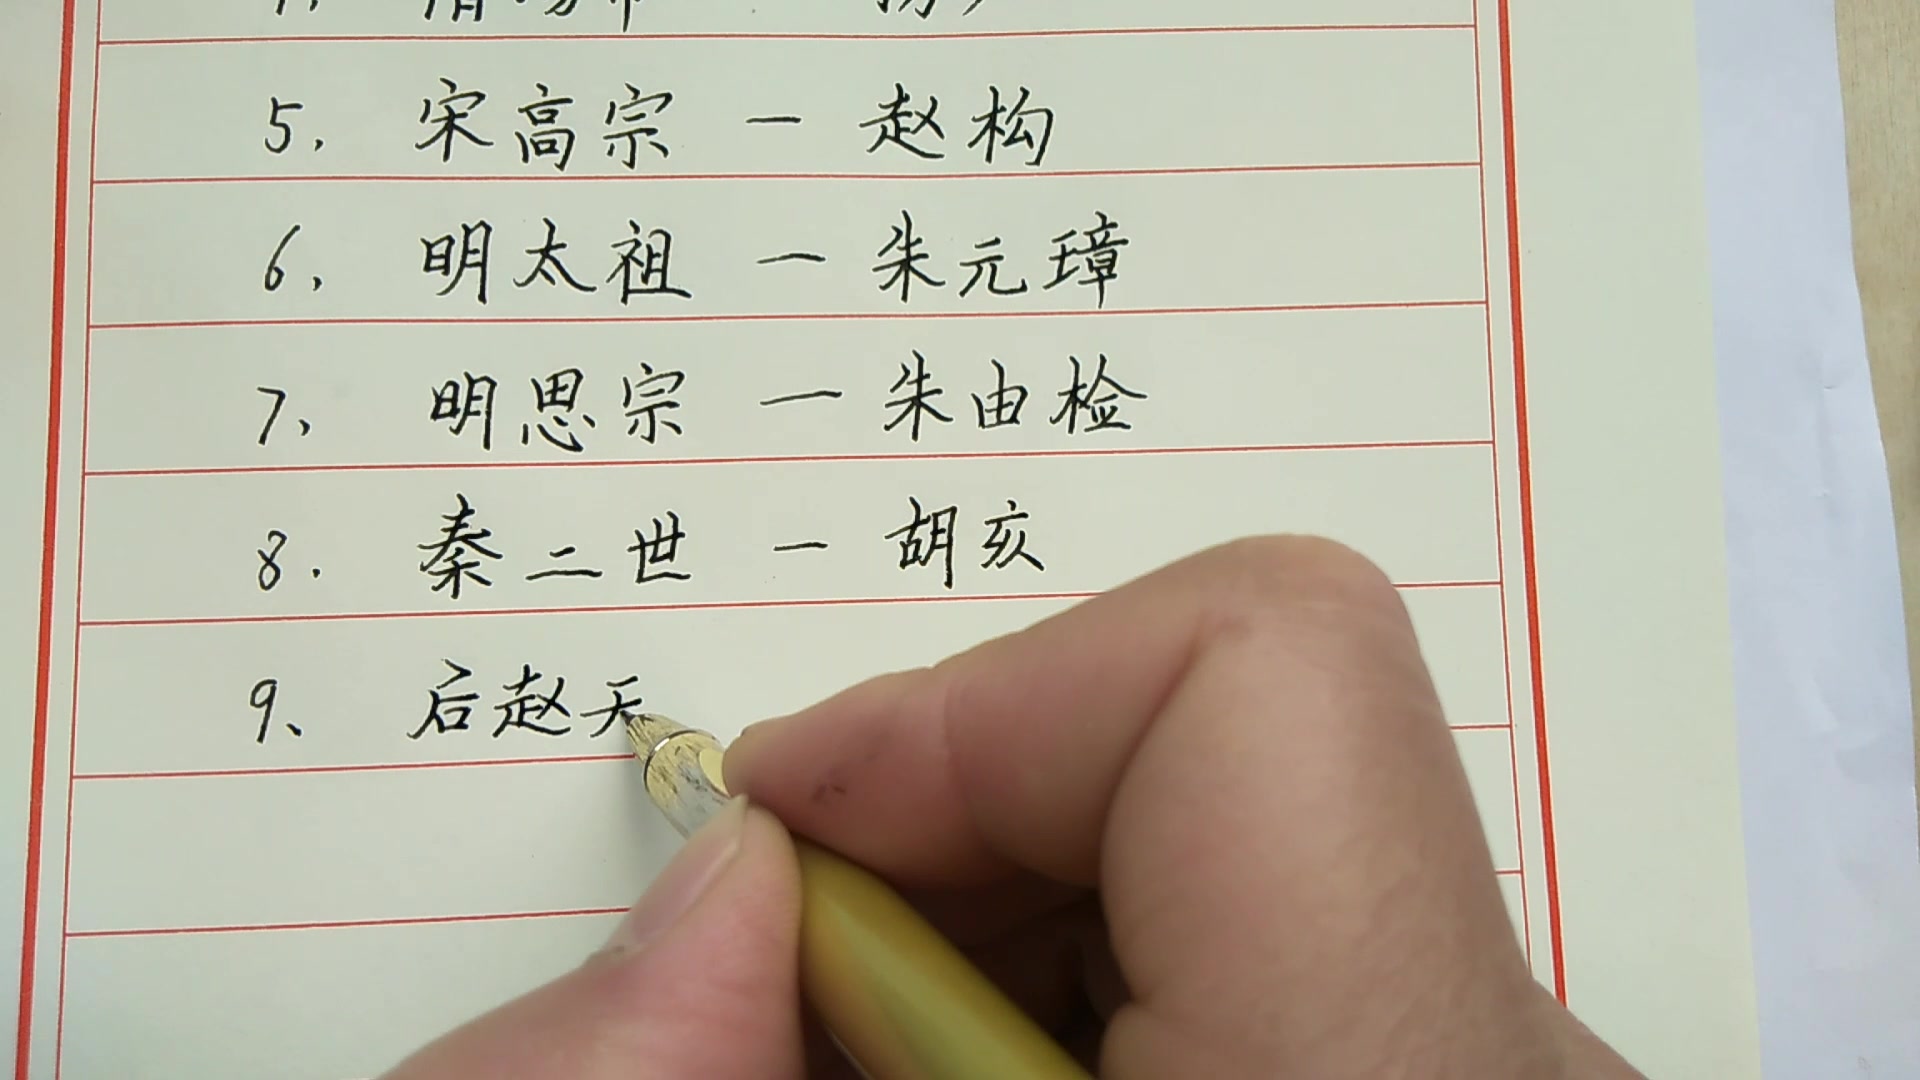 5, 宋高宗 — 赵构
6, 明太祖 — 朱元璋
7、 明思宗 — 朱由检
8. 秦二世 — 胡亥
9、 后赵天